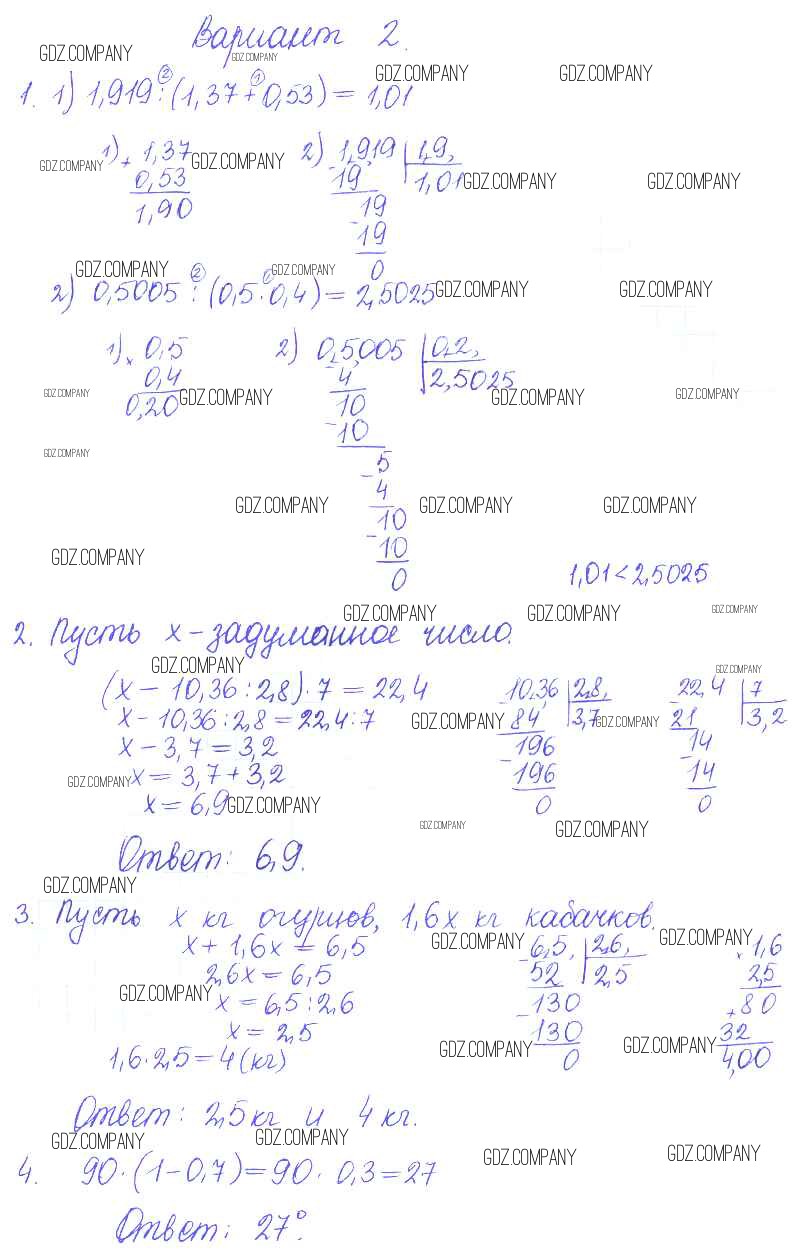 Вариант 2.
GDZ.COMPANY GDZ.COMPANY GDZ.COMPANY GDZ.COMPANY
1. 1) 1,919 : (1,37 + 0,53) = 1,01
② ①
1) + 1,37
0,53
1,90
2) 1,919 | 1,9
- 19 | 1,01
19
- 19
0
GDZ.COMPANY GDZ.COMPANY GDZ.COMPANY GDZ.COMPANY
GDZ.COMPANY GDZ.COMPANY GDZ.COMPANY GDZ.COMPANY
2) 0,5005 : (0,5 · 0,4) = 2,5025
②
1) × 0,5
0,4
0,20
2) 0,5,005 | 0,2,
- 4 | 2,5025
10
- 10
5
- 4
10
- 10
0
GDZ.COMPANY GDZ.COMPANY GDZ.COMPANY GDZ.COMPANY
GDZ.COMPANY
GDZ.COMPANY GDZ.COMPANY GDZ.COMPANY
GDZ.COMPANY
1,01 < 2,5025
GDZ.COMPANY GDZ.COMPANY GDZ.COMPANY
2. Пусть x – задуманное число.
GDZ.COMPANY GDZ.COMPANY
(x – 10,36 : 2,8) · 7 = 22,4
x – 10,36 : 2,8 = 22,4 : 7
x – 3,7 = 3,2
x = 3,7 + 3,2
x = 6,9
10,36 | 2,8,
- 84 | 3,7
196
- 196
0
- 22,4 | 7
21 | 3,2
14
- 14
0
GDZ.COMPANY GDZ.COMPANY
GDZ.COMPANY GDZ.COMPANY
GDZ.COMPANY GDZ.COMPANY
Ответ: 6,9.
GDZ.COMPANY
3. Пусть x кг огурцов, 1,6x кг кабачков.
x + 1,6x = 6,5
2,6x = 6,5
x = 6,5 : 2,6
x = 2,5
1,6 · 2,5 = 4 (кг)
- 6,5, | 2,6,
52 | 2,5
130
- 130
0
× 1,6
2,5
80
+ 32
4,00
GDZ.COMPANY GDZ.COMPANY
GDZ.COMPANY
GDZ.COMPANY GDZ.COMPANY
Ответ: 2,5 кг и 4 кг.
GDZ.COMPANY GDZ.COMPANY GDZ.COMPANY GDZ.COMPANY
4. 90 · (1 – 0,7) = 90 · 0,3 = 27
Ответ: 27°.